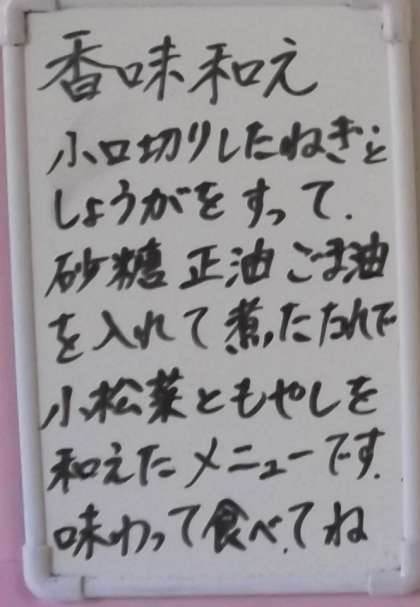 香味和え
小口切りしたねぎと
しょうがをすって.
砂糖 正油 ごま油
を入れて煮たたれで
小松菜ともやしを
和えたメニューです.
味わって食べてね